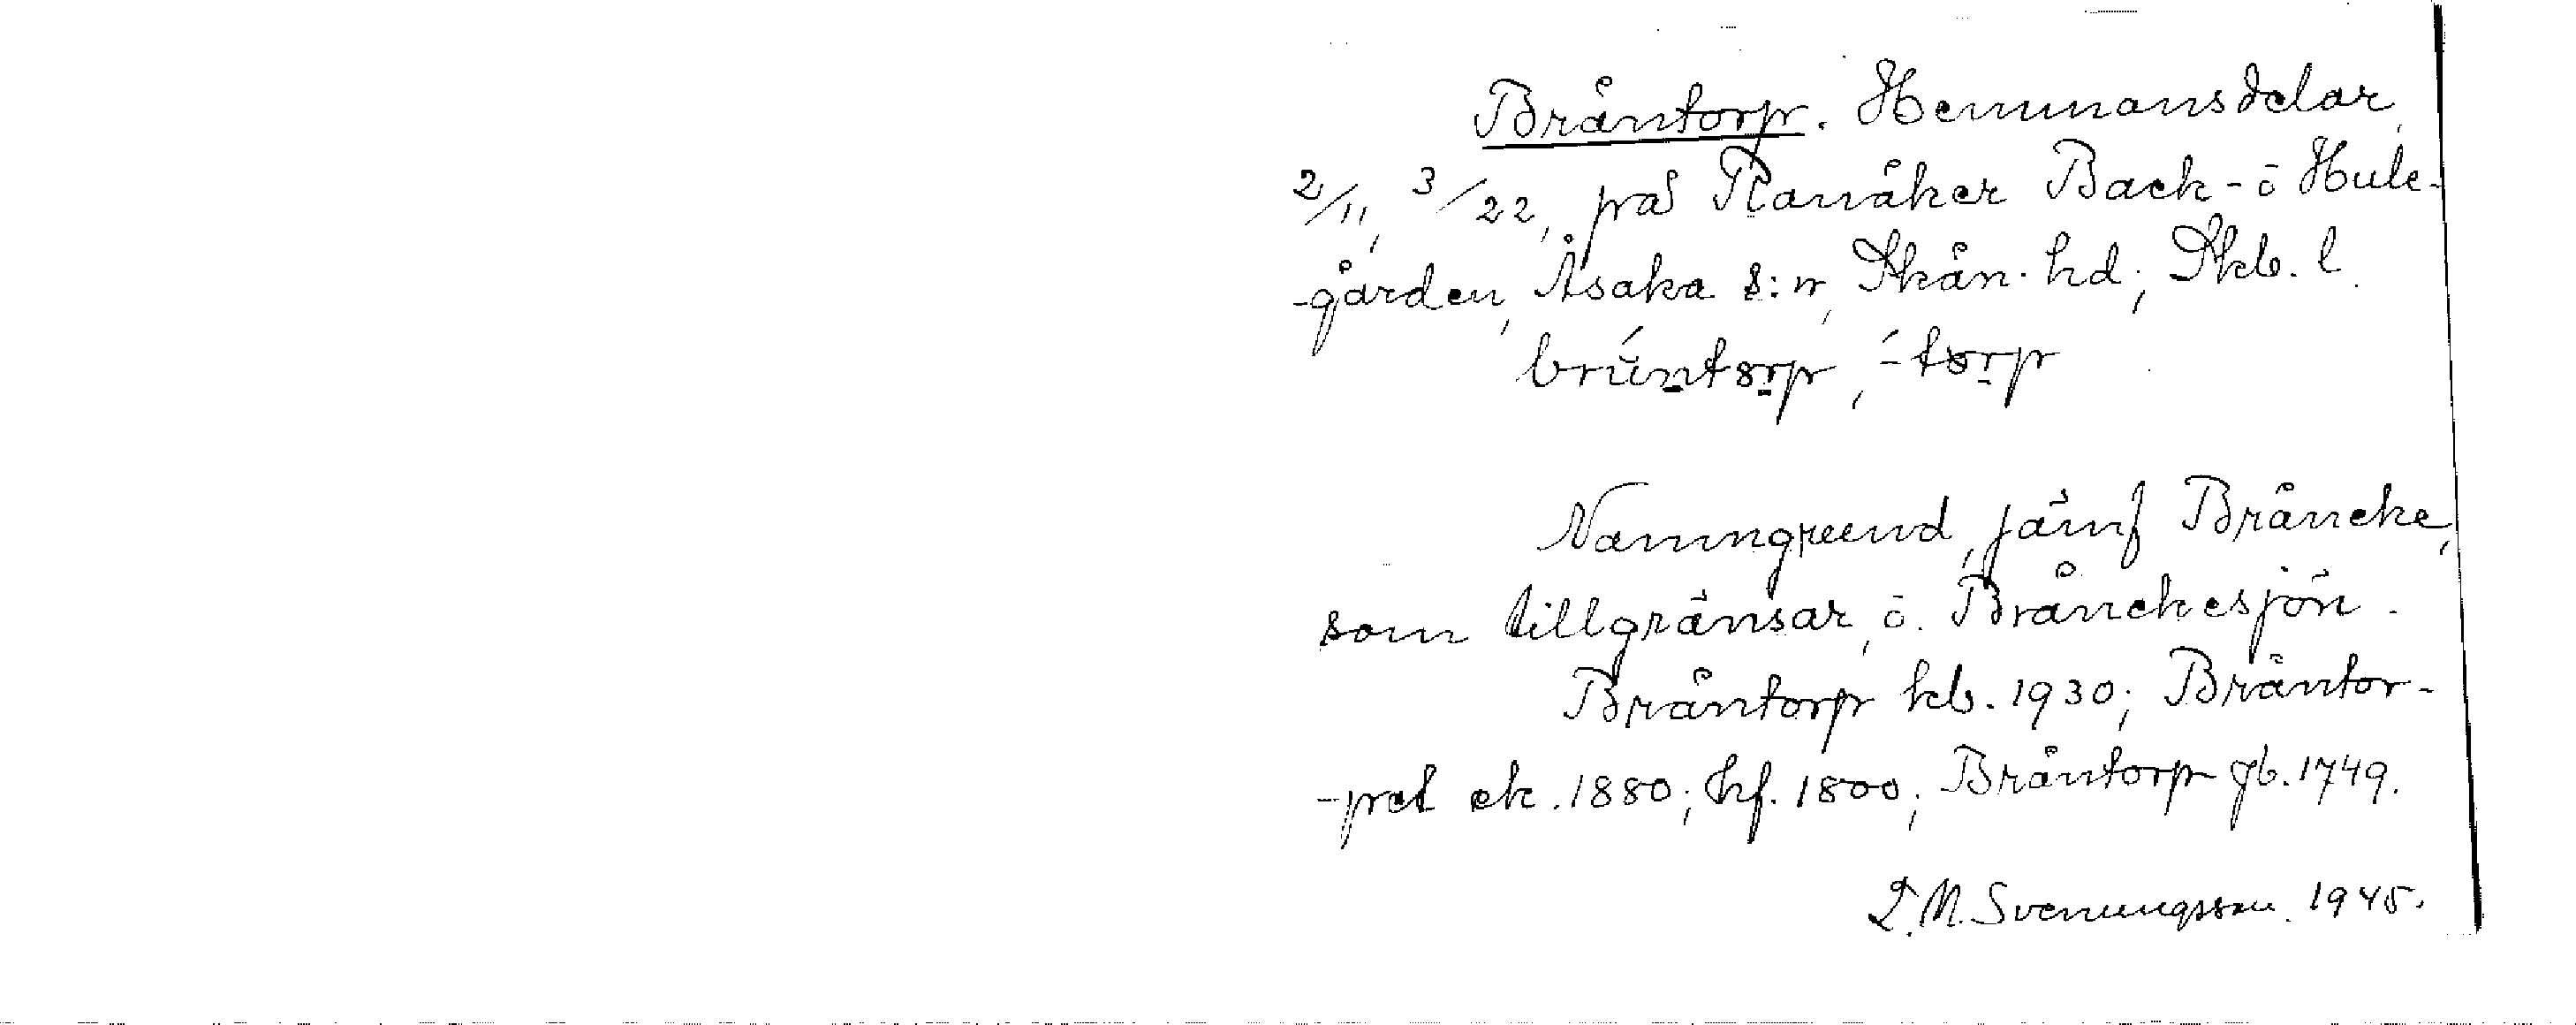 Bråntorp. Hemmansdelar,
2/11, 3/22, på Ranåker Back- o Hule-
-gården, Åsaka s:n, Skån. hd; Skb. l.
brúntorp, -torp
Namngrund, jämf Bråncke,
som tillgränsar, o. Brånckesjön.
Bråntorp kb. 1930; Bråntor-
-pet ek. 1880; hf. 1800; Bråntorp jb. 1749.
L. M. Svenungsson. 1945.